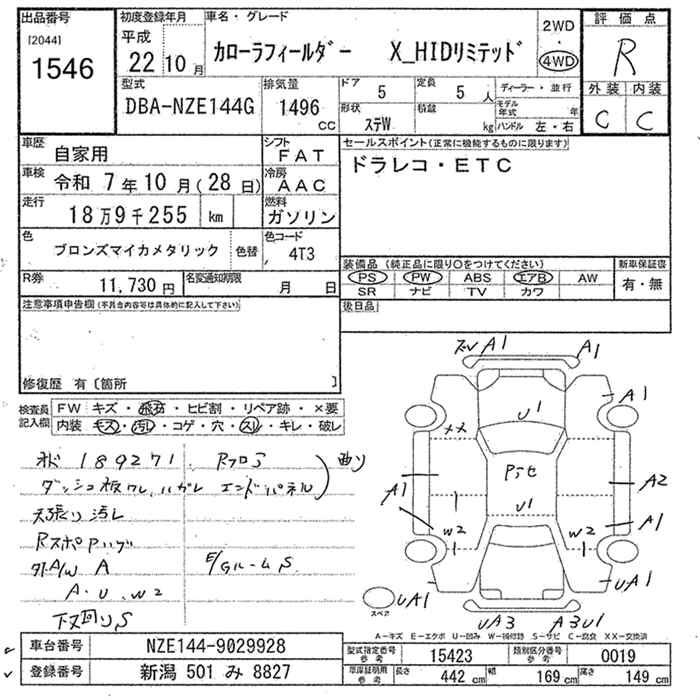 出品番号
[2044]
1546
初度登録年月
平成
22年10月
車名・グレード
カローラフィールダー X_HIDリミテッド
2WD
・
4WD
評価点
R
外装 内装
C C
型式
DBA-NZE144G
排気量
1496
CC
ドア
5
定員
5人
形状
ステW
積載
kg
ディーラー・並行
モデル年式 年
ハンドル 左・右
車歴
自家用
シフト
FAT
車検
令和 7年10月(28日)
冷房
AAC
走行
18万9千255 km
燃料
ガソリン
色
ブロンズマイカメタリック
色替
色コード
4T3
R券
11,730円
名変通知期限
月 日
セールスポイント(正常に機能するものに限ります)
ドラレコ・ETC
装備品(純正品に限り○をつけてください)
PS PW ABS エアB AW
SR ナビ TV カワ
新車保証書
有・無
後日品
注意事項申告欄(不具合内容等は具体的に記入して下さい)
修復歴 有〔箇所 〕
検査員記入欄
FW キズ・飛石・ヒビ割・リペア跡・×要
内装 キズ・汚レ・コゲ・穴・スレ・キレ・破レ
189271
ダッシュ板ワレ、ハガレ エンドパネル
曲り
天張り汚レ
外A/W A
A・U・W2
E/GルームS
下回りS
A1
A1
A1
U1
××
A1
A2
A1
U1
W2
W2
UA1
UA1
スペア
UA3
A3U1
A-キズ E-エクボ U-凹み W-補修跡 S-サビ C-腐食 XX-交換済
車台番号
NZE144-9029928
登録番号
新潟 501 み 8827
型式指定番号
参考
15423
類別区分番号
参考
0019
車庫証明用
参考
長さ
442 cm
幅
169 cm
高さ
149 cm